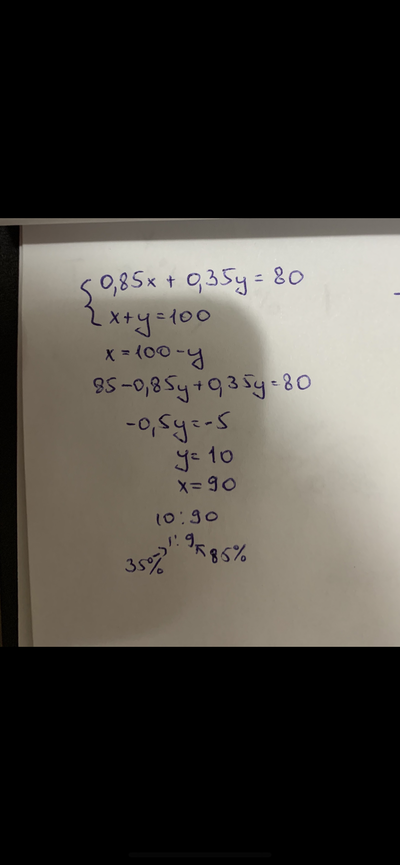 { 0,85x + 0,35y = 80
x+y=100
x=100-y
85-0,85y+0,35y=80
-0,5y=-5
y=10
x=90
10:90
1:9
35% 85%